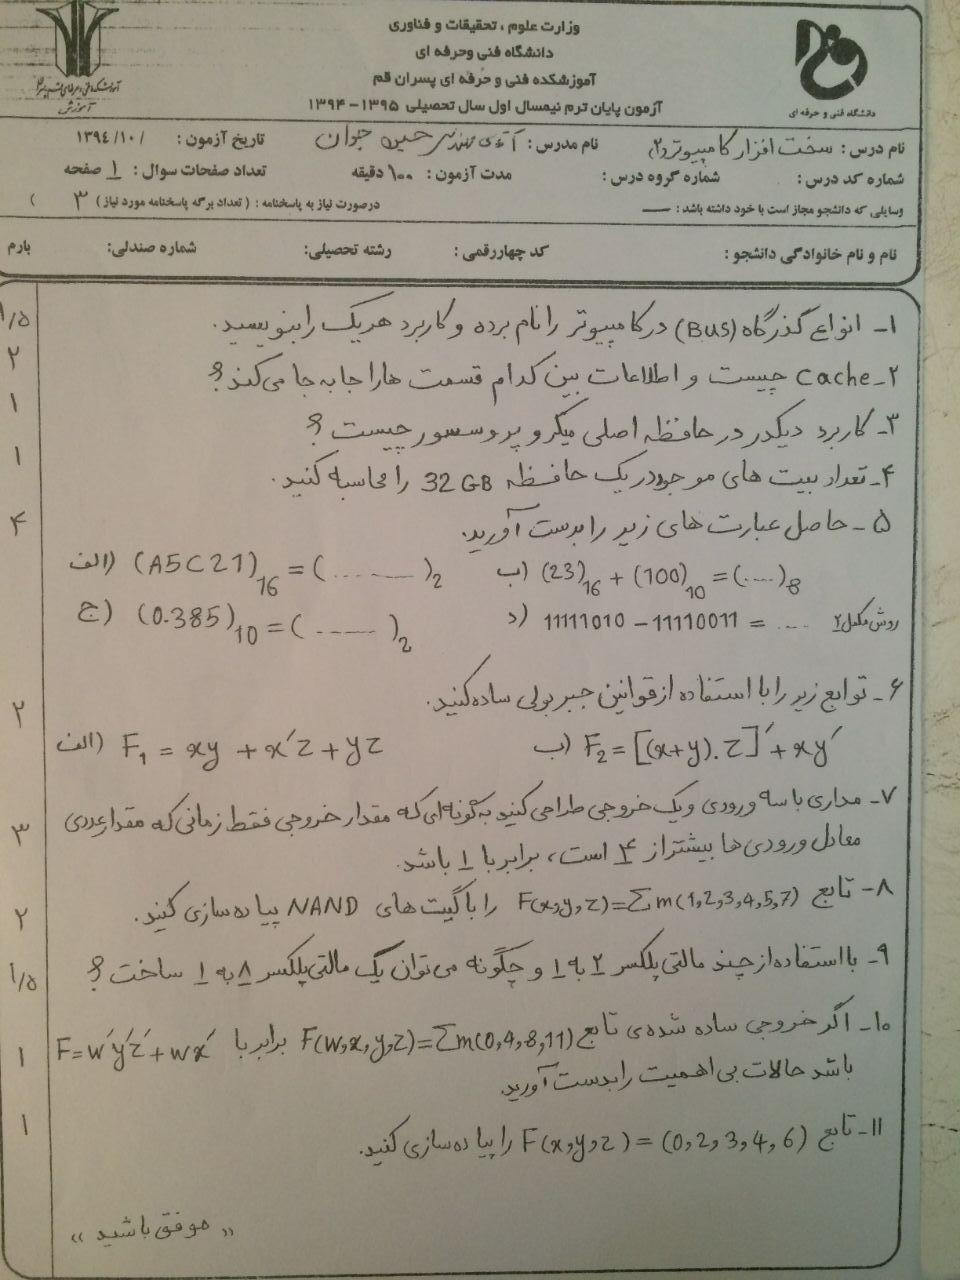 وزارت علوم ، تحقیقات و فناوری
دانشگاه فنی وحرفه ای
آموزشکده فنی و حرفه ای پسران قم
آزمون پایان ترم نیمسال اول سال تحصیلی ۱۳۹۵-۱۳۹۴
دانشگاه فنی و حرفه ای
آموزش
نام درس : سخت افزار کامپیوتر (۲) نام مدرس : آقای مهندس حسین جوان تاریخ آزمون : / ۱۳۹۴/۱۰
شماره کد درس : شماره گروه درس : مدت آزمون : ۱۰۰ دقیقه تعداد صفحات سوال : ۱ صفحه
وسایلی که دانشجو مجاز است با خود داشته باشد : — درصورت نیاز به پاسخنامه : ( تعداد برگه پاسخنامه مورد نیاز ) ۳ )
نام و نام خانوادگی دانشجو : کد چهاررقمی : رشته تحصیلی: شماره صندلی: بارم
۱- انواع گذرگاه (Bus) در کامپیوتر را نام برده و کاربرد هریک را بنویسید. ۱/۵
۲- cache چیست و اطلاعات بین کدام قسمت هارا جا به جا می کند؟ ۲
۳- کاربرد دیکدر در حافظه اصلی میکروپروسسور چیست ؟ ۱
۴- تعداد بیت های موجود در یک حافظه 32 GB را محاسبه کنید. ۱
۵- حاصل عبارت های زیر را بدست آورید. ۴
الف) (A5C21)16 = (.........)2 ب) (23)16 + (100)10 = (.....)8
ج) (0.385)10 = (.......)2 د) 11111010 - 11110011 = .... روش مکمل ۲
۶- توابع زیر را با استفاده از قوانین جبر بولی ساده کنید. ۲
الف) F1 = xy + x'z + yz ب) F2 = [(x+y).z]' + xy'
۷- مداری با سه ورودی و یک خروجی طراحی کنید به گونه ای که مقدار خروجی فقط زمانی که مقدار عددی ۳
معادل ورودی ها بیشتر از ۴ است، برابر با ۱ باشد.
۸- تابع F(x,y,z)=Σm(1,2,3,4,5,7) را با گیت های NAND پیاده سازی کنید. ۲
۹- با استفاده از چند مالتی پلکسر ۲ به ۱ و چگونه می توان یک مالتی پلکسر ۸ به ۱ ساخت ؟ ۱/۵
۱۰- اگر خروجی ساده شده ی تابع F(w,x,y,z)=Σm(0,4,8,11) برابر با F=w'y'z'+wx' ۱
باشد حالات بی اهمیت را بدست آورید.
۱۱- تابع F(x,y,z) = (0,2,3,4,6) را پیاده سازی کنید. ۱
« موفق باشید »